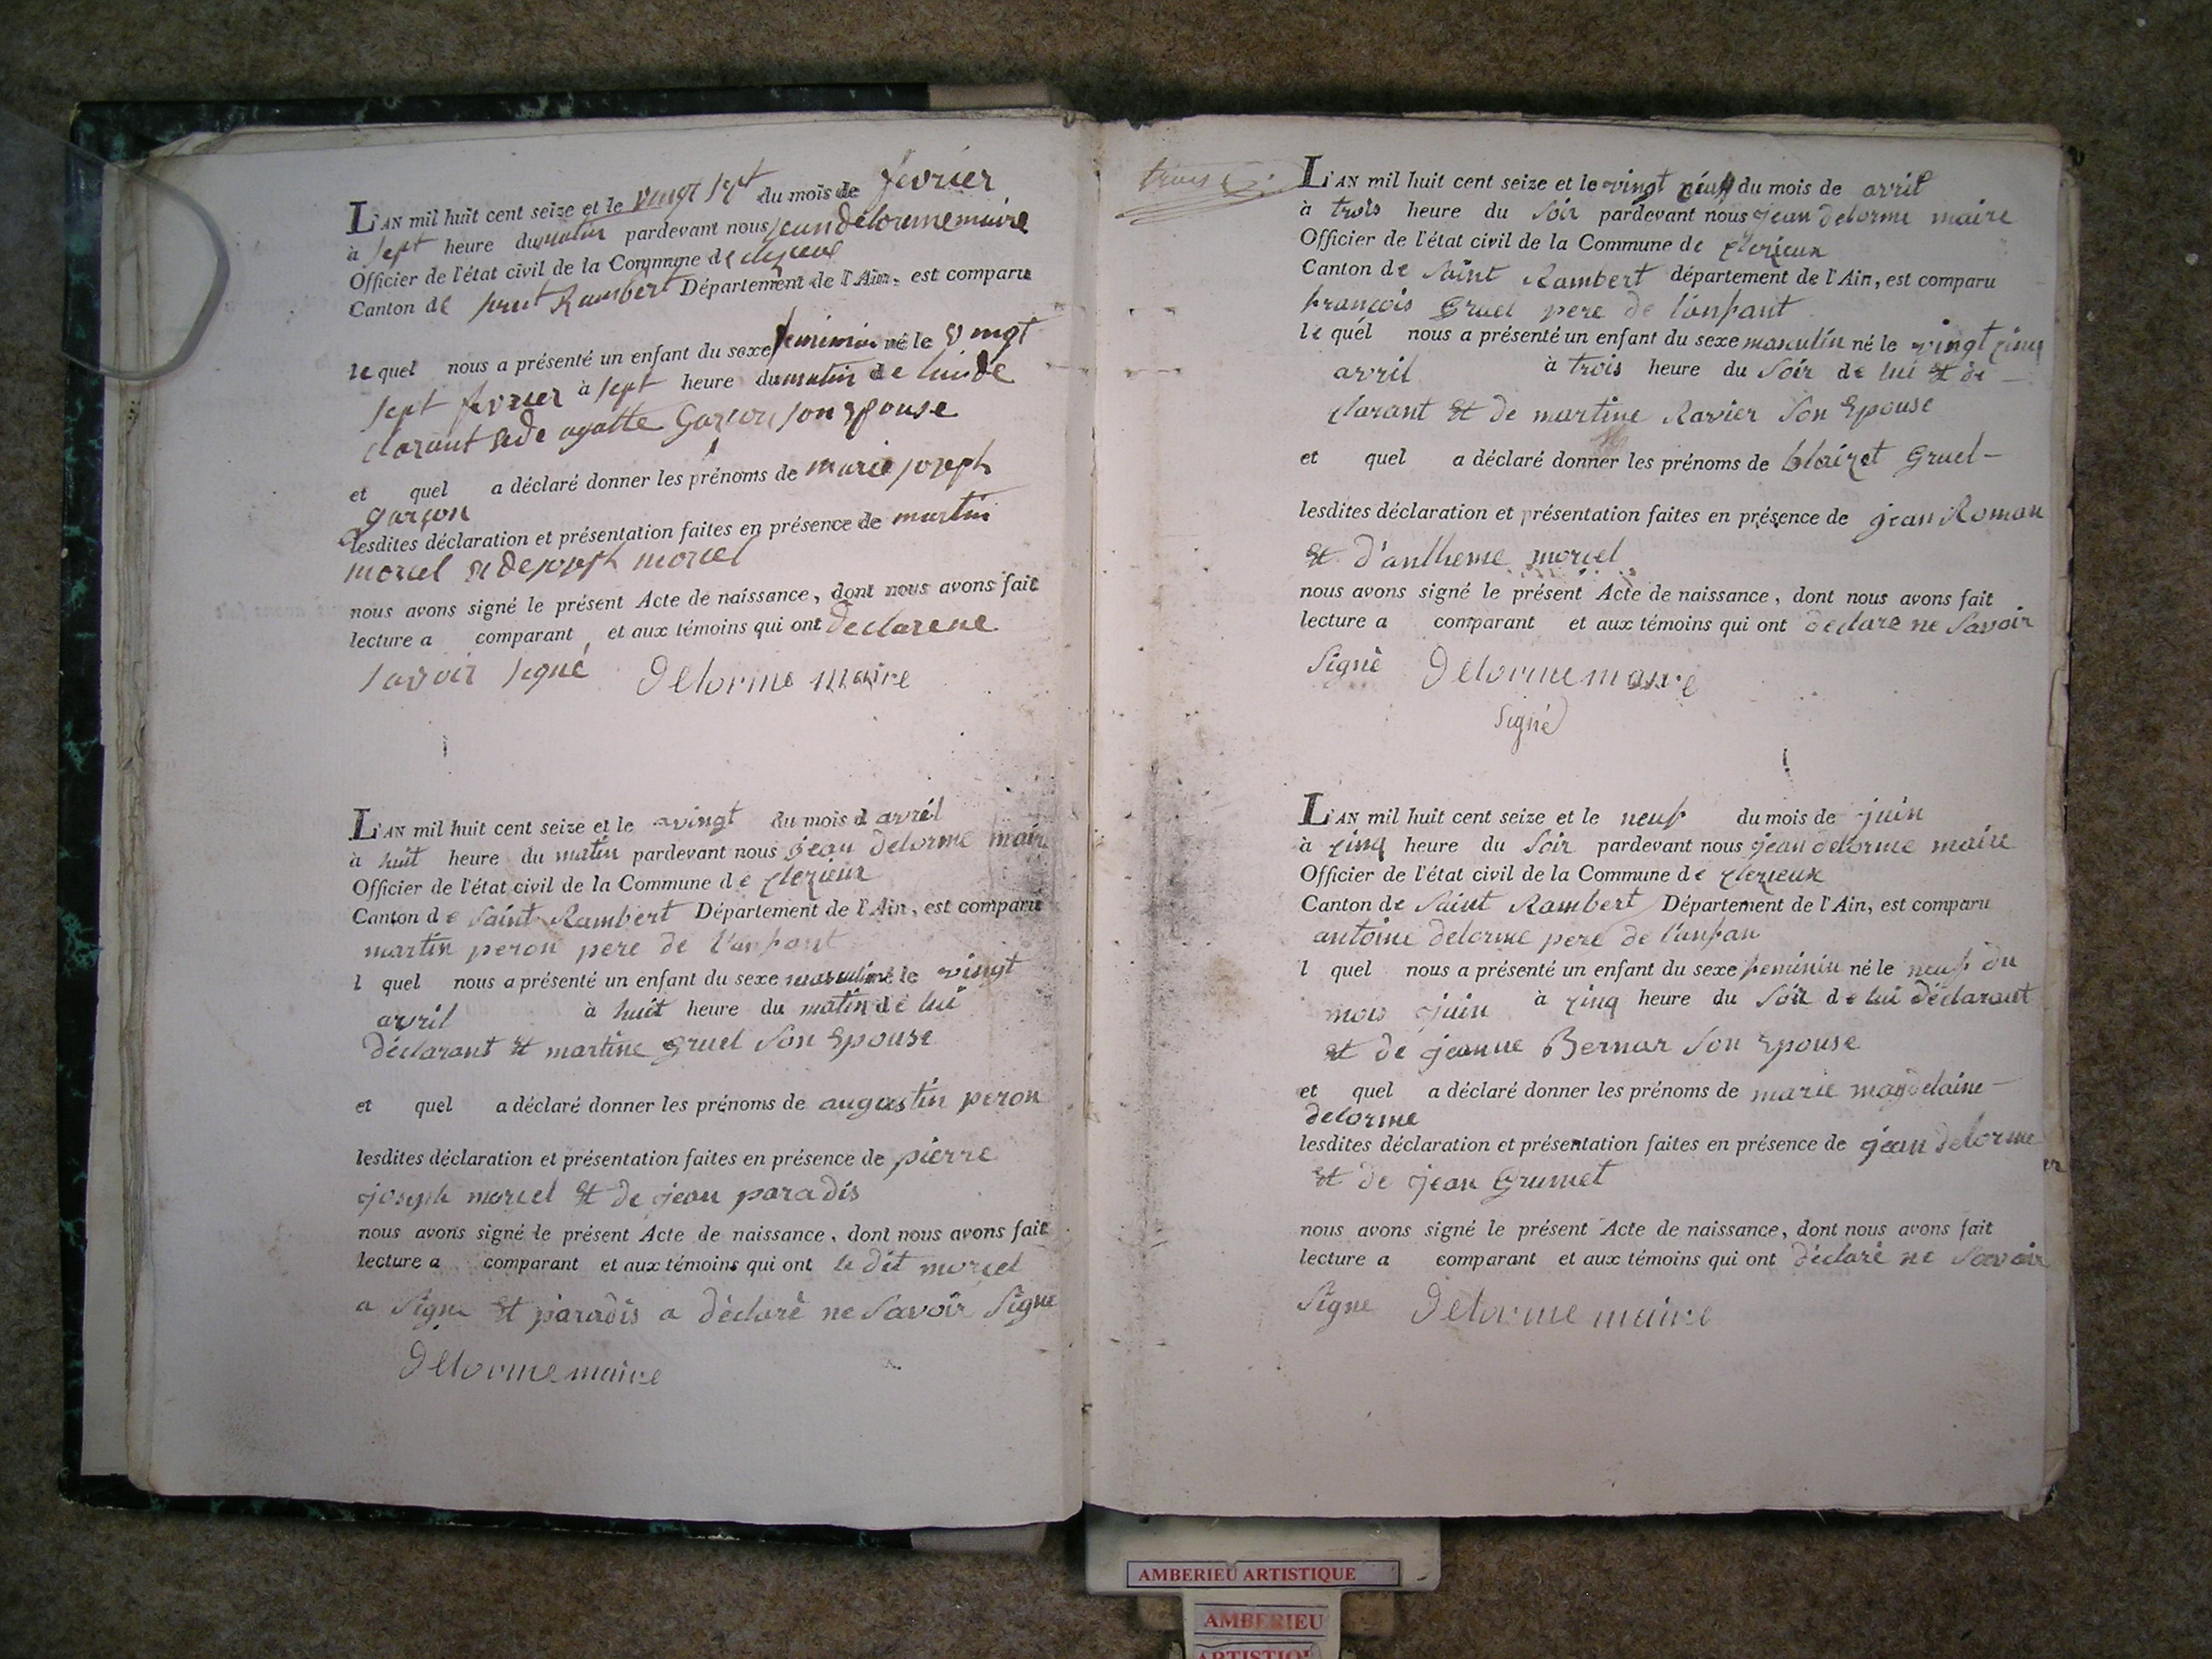 L'AN mil huit cent seize et le vingt sept du mois de fevrier
à sept heure du matin pardevant nous jean delorme maire
Officier de l'état civil de la Commune de
Canton de Rambert Département de l'Ain, est comparu
le quel nous a présenté un enfant du sexe feminin né le vingt
sept fevrier à sept heure du matin de lui de
clarant et de agatte son epouse
et quel a déclaré donner les prénoms de marie joseph
garçon
lesdites déclaration et présentation faites en présence de martin
morcel et de joseph morcel
nous avons signé le présent Acte de naissance, dont nous avons fait
lecture a comparant et aux témoins qui ont declare ne
savoir signé Delorme maire
L'AN mil huit cent seize et le vingt du mois d avril
à huit heure du matin pardevant nous jean delorme maire
Officier de l'état civil de la Commune de clezieux
Canton de Saint Rambert Département de l'Ain, est comparu
martin peron pere de l'anfant
l quel nous a présenté un enfant du sexe masculin né le vingt
avril à huit heure du matin de lui
déclarant et martine gruel son epouse
et quel a déclaré donner les prénoms de augustin peron
lesdites déclaration et présentation faites en présence de pierre
joseph morcel et de jean paradis
nous avons signé le présent Acte de naissance, dont nous avons fait
lecture a comparant et aux témoins qui ont le dit morcel
a signe et paradis a déclaré ne savoir signe
Delorme maire
trois
L'AN mil huit cent seize et le vingt neuf du mois de avril
à trois heure du soir pardevant nous jean delorme maire
Officier de l'état civil de la Commune de clezieux
Canton de Saint Rambert département de l'Ain, est comparu
françois gruel pere de l'anfant
le quel nous a présenté un enfant du sexe masculin né le vingt cinq
avril à trois heure du soir de lui et de
clarant et de martine Ravier son epouse
et quel a déclaré donner les prénoms de blaizet gruel
lesdites déclaration et présentation faites en présence de jean Roman
et d'antheme morcel
nous avons signé le présent Acte de naissance, dont nous avons fait
lecture a comparant et aux témoins qui ont declare ne savoir
signè Delorme maire
signé
L'AN mil huit cent seize et le neuf du mois de juin
à cinq heure du soir pardevant nous jean delorme maire
Officier de l'état civil de la Commune de clezieux
Canton de Saint Rambert Département de l'Ain, est comparu
antoine delorme pere de l'anfan
l quel nous a présenté un enfant du sexe feminin né le neuf du
mois juin à cinq heure du soir de lui déclarant
et de jeanne Bernar son epouse
et quel a déclaré donner les prénoms de marie magdelaine
delorme
lesdites déclaration et présentation faites en présence de jean delorme
et de jean Grumet
nous avons signé le présent Acte de naissance, dont nous avons fait
lecture a comparant et aux témoins qui ont déclaré ne savoir
signe Delorme maire
AMBERIEU ARTISTIQUE
AMBERIEU
ARTISTIQUE